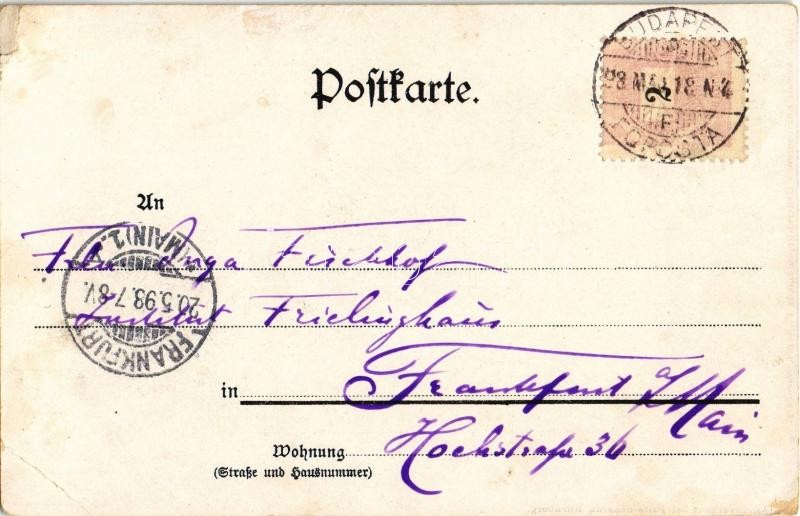 BUDAPEST
98 MÁJ 18 N 2
2
F
FŐPOSTA
Postkarte.
An
Frln Inga Fischhof
FRANKFURT (MAIN) 1.
20.5.98.7-8V.
Institut Frielinghaus
in Frankfurt a/Main
Hochstraße 36
Wohnung
(Straße und Hausnummer)